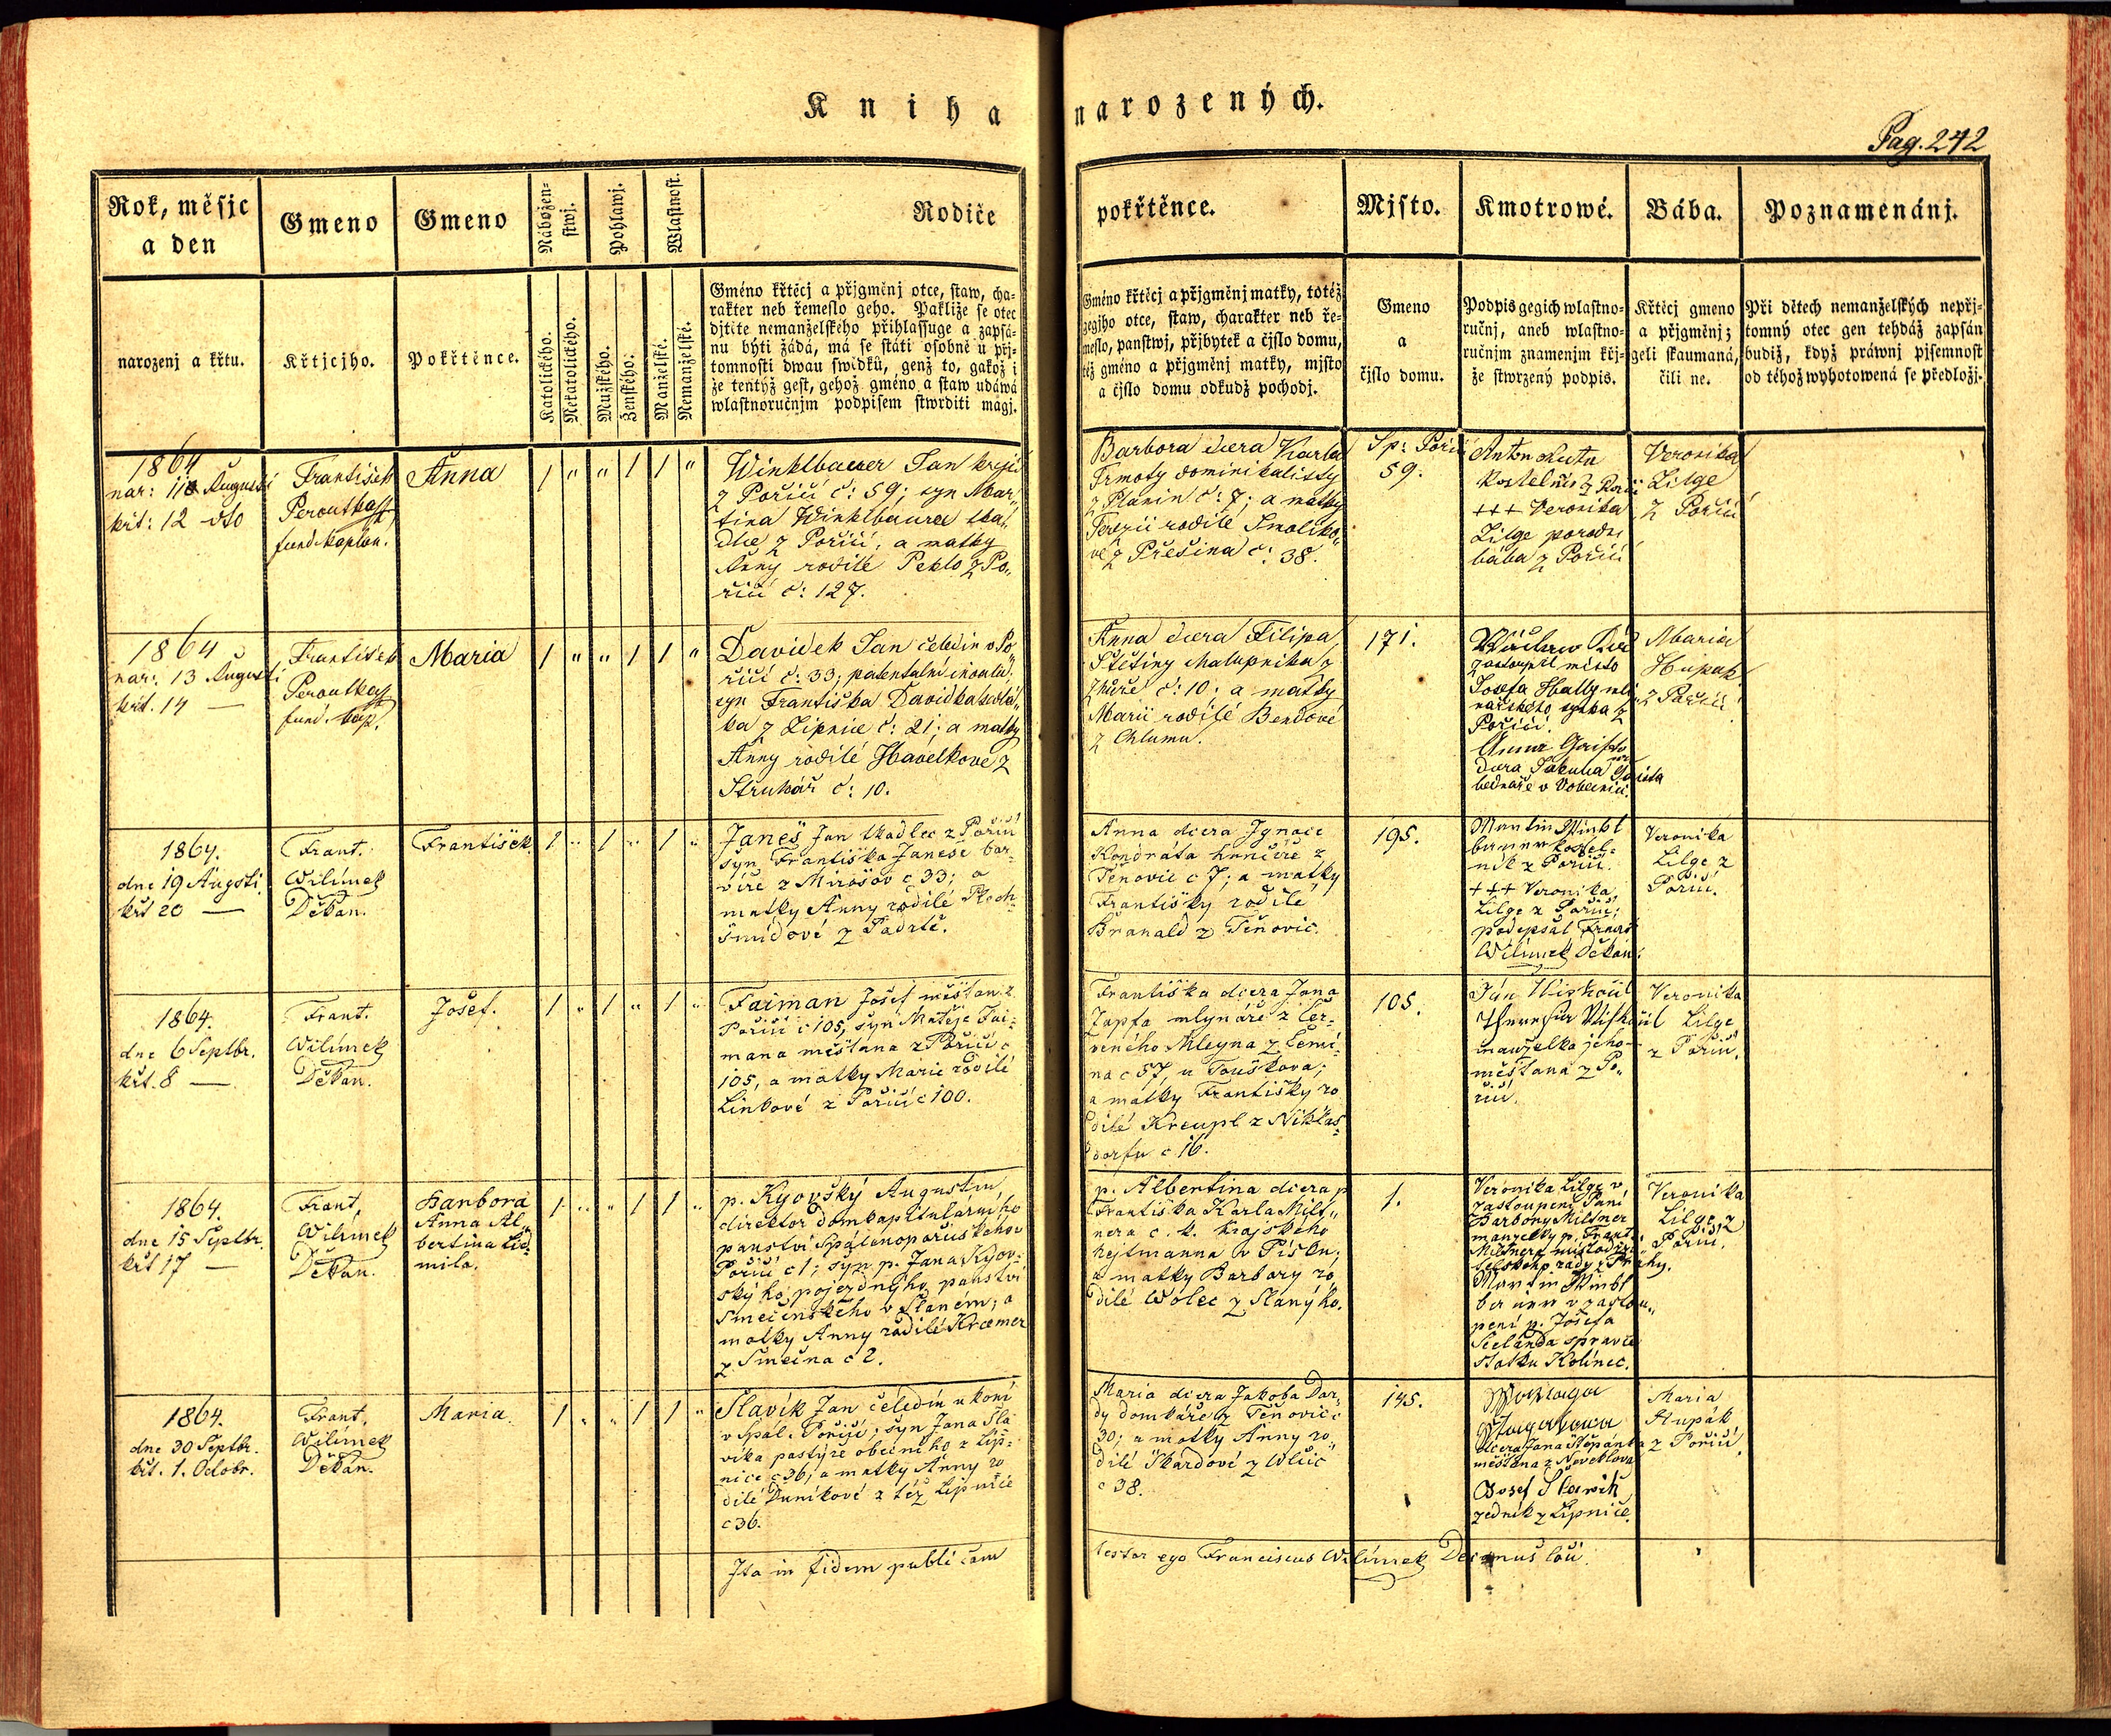 Kniha narozených.
Pag. 242
Rok, měsjc
a den
Gmeno
Gmeno
Nábožen-
stwj.
Pohlawj.
Wlastnost.
Rodiče
pokřtěnce.
Mjsto.
Kmotrowé.
Bába.
Poznamenánj.
narozenj a křtu.
Křtjcjho.
Pokřtěnce.
Katolického.
Nekatolického.
Mužského.
Ženského.
Manželské.
Nemanželské.
Gméno křtěcj a přjgměnj otce, staw, cha-
rakter neb řemeslo geho. Pakliže se otec
djtěte nemanželského přihlassuge a zapsá-
nu býti žádá, má se státi osobně u přj-
tomnosti dwau swědků, genž to, gakož i
že tentýž gest, gehož gméno a staw udáwá
wlastnoručnjm podpisem stwrditi magj.
Gméno křtěcj a přjgměnj matky, totéž
gegjho otce, staw, charakter neb ře-
meslo, panstwj, přjbytek a čjslo domu,
též gméno a přjgměnj matky, mjsto
a čjslo domu odkudž pochodj.
Gmeno
a
čjslo domu.
Podpis gegich wlastno-
ručnj, aneb wlastno-
ručnjm znamenjm křj-
že stwrzený podpis.
Křtěcj gmeno
a přjgměnj;
geli skaumaná,
čili ne.
Při dětech nemanželských nepřj-
tomný otec gen tehdáž zapsán
budiž, když práwnj pjsemnost
od téhož wyhotowená se předložj.
1864
nar: Augusti
křt: 12 dto
František
Peroutka
fund. kaplan.
Anna
1 " " 1 1 "
Winklbauer Jan krejčí
z Pořičí č: 59; syn Mar„
tina Winklbaura tka„
dlce z Pořičí, a matky
Anny rodilé Peklo z Po„
řičí č: 127.
Barbora dcera Karla
Trmoty dominikalisty
z Planin č: 7; a matky
Terezii rodilé Smoliko„
vé z Přešina č: 38.
Sp: Pořičí
59.
Anton
Kostelník z Pořičí
+++ Veronika
Lilge porodní
bába z Pořičí
Veronika
Lilge
z Pořičí
1864
nar. 13 Augusti
křt. 14 —
František
Peroutka
fund. kap.
Maria
1 " " 1 1 "
Davidek Jan čeledin v Po„
řičí č: 33; patentalní invalid;
syn Františka Davidka sedlá„
ka z Lipnice č: 21; a matky
Anny rodilé Havelkove z
Struhář č: 10.
Anna dcera Filipa
Štětiny chalupnika z
Zhůře č: 10; a matky
Marii rodilé Bendové
z Chlumu.
171.
Václav
zastoupil místo
Josefa Hally mly„
nařského synka z
Pořičí.
Anna
dcera Jakuba
bednáře v Dobecnici.
Maria
Hupak
z Pořičí
1864.
dne 19 Augsti.
křt 20 —
Frant.
Wilímek
Děkan.
František.
1 " 1 " 1 "
Janeš Jan tkadlec z Pořičí
syn Františka Janeše bar-
víře z Mirošov c 33; a
matky Anny rodilé Plech-
šmidové z Padrtě.
Anna dcera Jgnace
Kondráta hrnčíře z
Těnovic c 7; a matky
Františky rodilé
Branald z Těnovic.
195.
Martin Winkl
bauer kostel-
ník z Pořičí.
+++ Veronika
Lilge z Pořičí;
podepsal Frant
Wilímek Děkan.
Veronika
Lilge z
Pořičí.
1864.
dne 6 Septbr.
křt. 8 —
Frant.
Wilímek
Děkan.
Josef.
1 " 1 " 1 "
Faiman Josef měštan z
Pořičí c 105, syn Matěje Fai-
mana měštana z Pořičí c
105, a matky Marie rodilé
Linkové z Pořičí c 100.
Františka dcera Jana
Zapfa mlynáře z Čer-
veného Mleyna z Lemi-
na c 57, u Touškova;
a matky Františky ro
dilé Kreupl z Niklas-
dorfu c 16.
105.
Jan
manželka jeho
měštana z Po„
řičí.
Veronika
Lilge
z Pořičí.
1864.
dne 15 Septbr.
křt 17 —
Frant.
Wilímek
Děkan.
Barbora
Anna Al„
bertina Lid„
mila.
1 " " 1 1 "
p. Kyovský Augustin
direktor domkapitulárního
panství Spálenopořičského v
Pořičí c 1; syn p. Jana Kyov-
ského, pojezdnýho panství
Smečenského v Slaném; a
matky Anny rodilé Kræmer
z Smečna c 2.
p. Albertina dcera p
Františka Karla Milt„
nera c. k. krajského
hejtmanna v Písku;
a matky Barbary ro„
dilé Wolec z Slanýho.
1.
Veronika Lilge v
zastoupení Paní
Barbory Miltner
manzelky p. Frant.
Miltnera místodrži-
telského rady z Prahy.
Martin Winkl
bauer v zastou„
pení p. Josefa
Seelanda spravce
statku Kolinec.
Veronika
Lilge z
Pořičí.
1864.
dne 30 Septbr.
křt. 1. Octobr.
Frant.
Wilímek
Děkan.
Maria.
1 " " 1 1 "
Slavík Jan čeledín u koní
v Spál: Pořičí; syn Jana Sla
víka pastýře obecního z Lip-
nice c 36; a matky Anny ro
dilé Duníkové z též Lipnice
c 36.
Maria dcera Jakoba Dar„
dy domkáře z Těnovic c
30; a matky Anny ro„
dilé Skardové z Wlčic
c 38.
145.
dcera Jana Štěpánka
měštana z Neveklova
Josef Slavik
zedník z Lipnice.
Maria
Hupák
z Pořičí.
Ita in fidem publicam
testor ego Franciscus Wilímek Decanus loci.